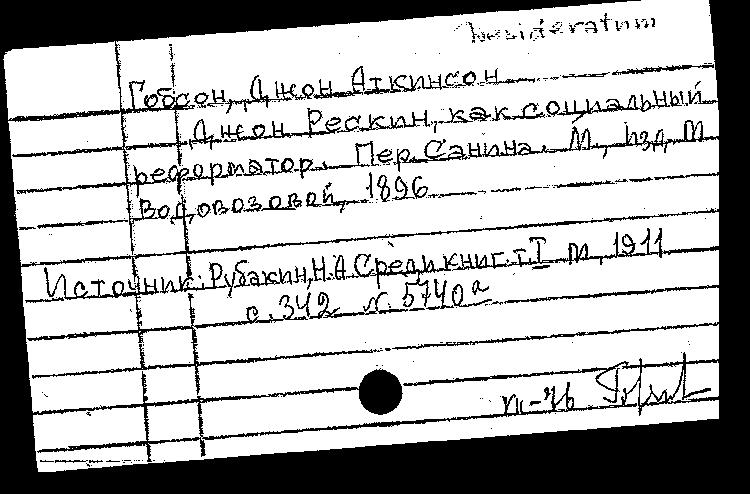 Desideratum
Гобсон, Джон Аткинсон
Джон Рескин, как социальный
реформатор. Пер. Санина. М., Изд. М
Водовозовой, 1896
Источник: Рубакин, Н.А Среди книг. т. I М, 1911
с. 342 N. 5740а